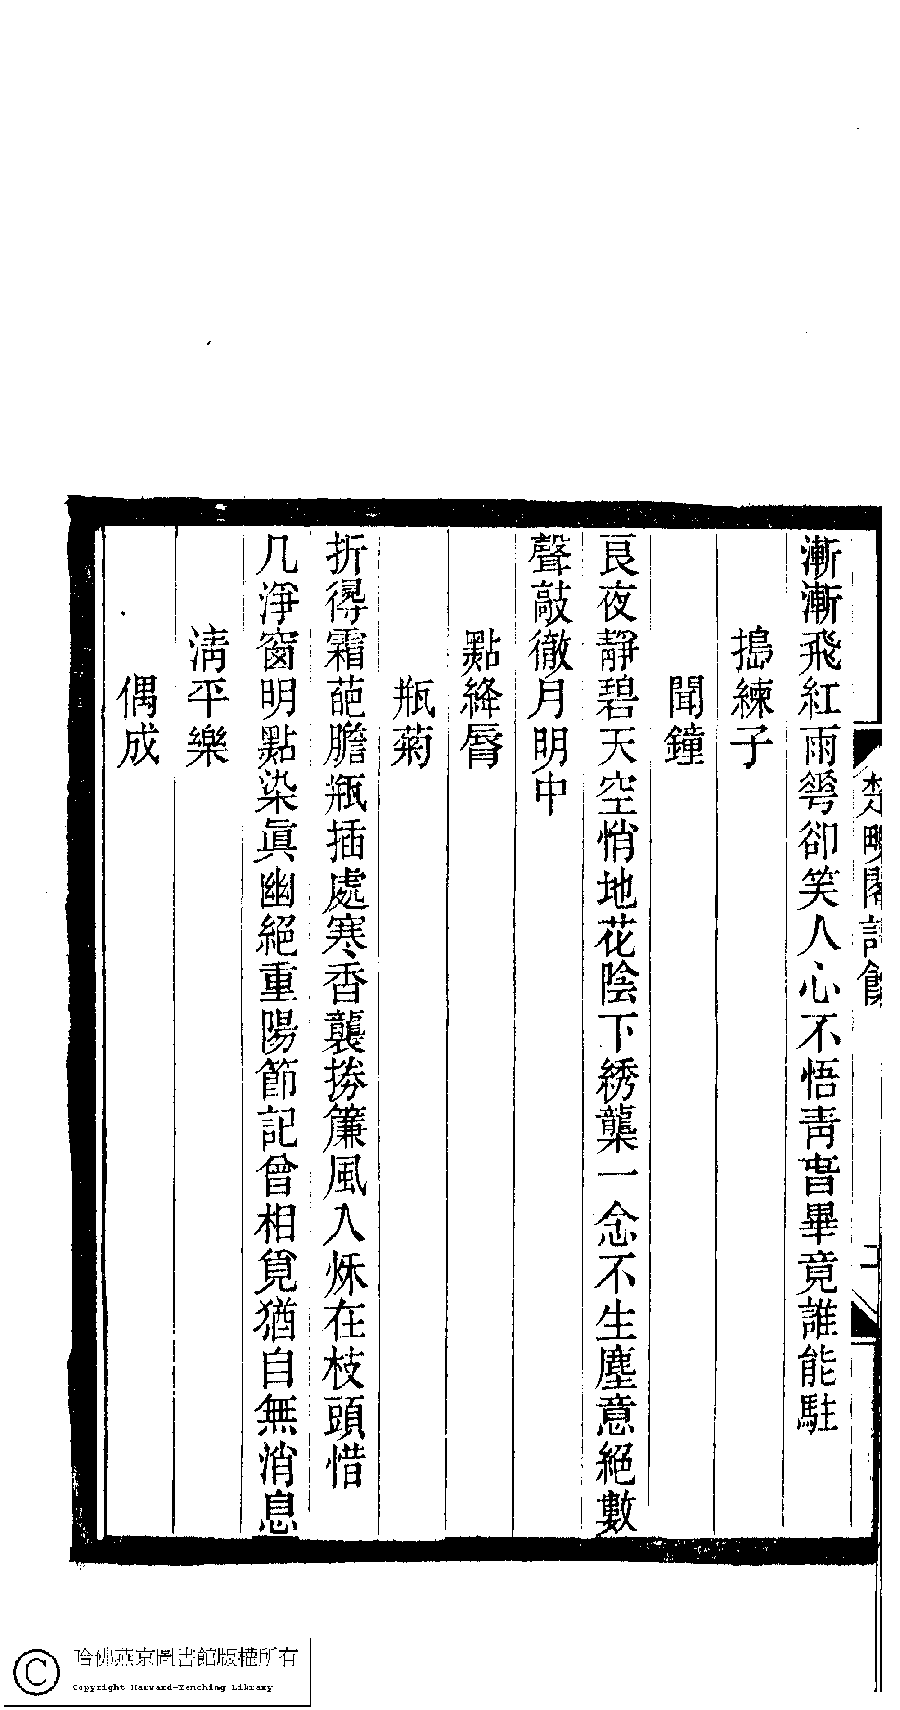 楚畹閣詩餘
二
漸漸飛紅雨卻笑人心不悟靑旾畢竟誰能駐
搗練子
聞鐘
良夜靜碧天空悄地花陰下綉龔一念不生塵意絕數
聲敲徹月明中
點絳唇
瓶菊
折得霜葩膽瓶插處寒香襲簾風入秌在枝頭惜
几淨窗明點染眞幽絕重陽節記曾相覓猶自無消息
淸平樂
偶成
哈佛燕京圖書館版權所有
Copyright Harvard-Yenching Library